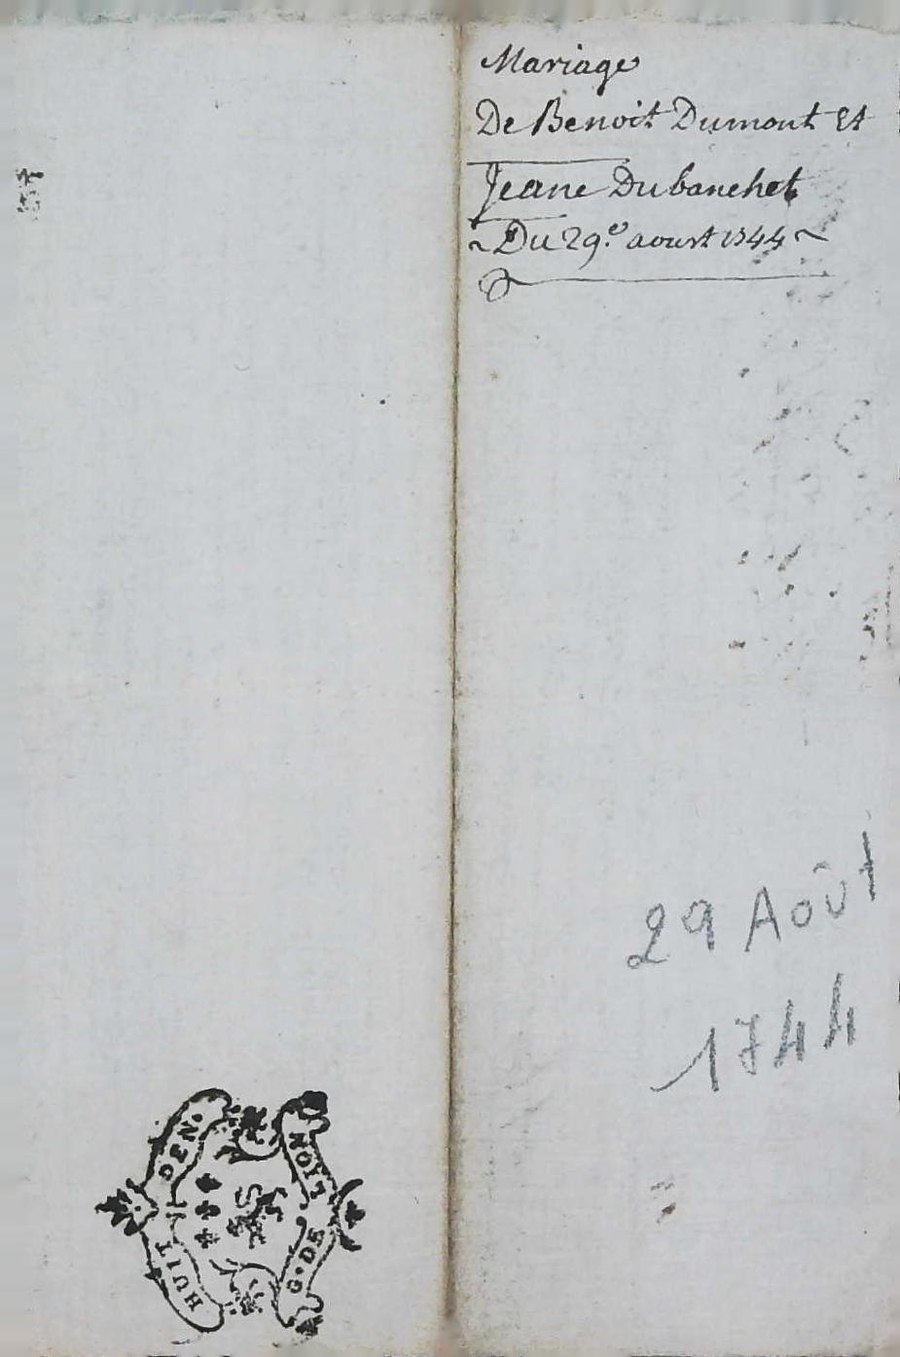 Mariage
De Benoit Dumont Et
Jeane Dubanchet
~ Du 29.e aoust 1744 ~
29 Août
1744
HUIT DEN.
G. DE LION